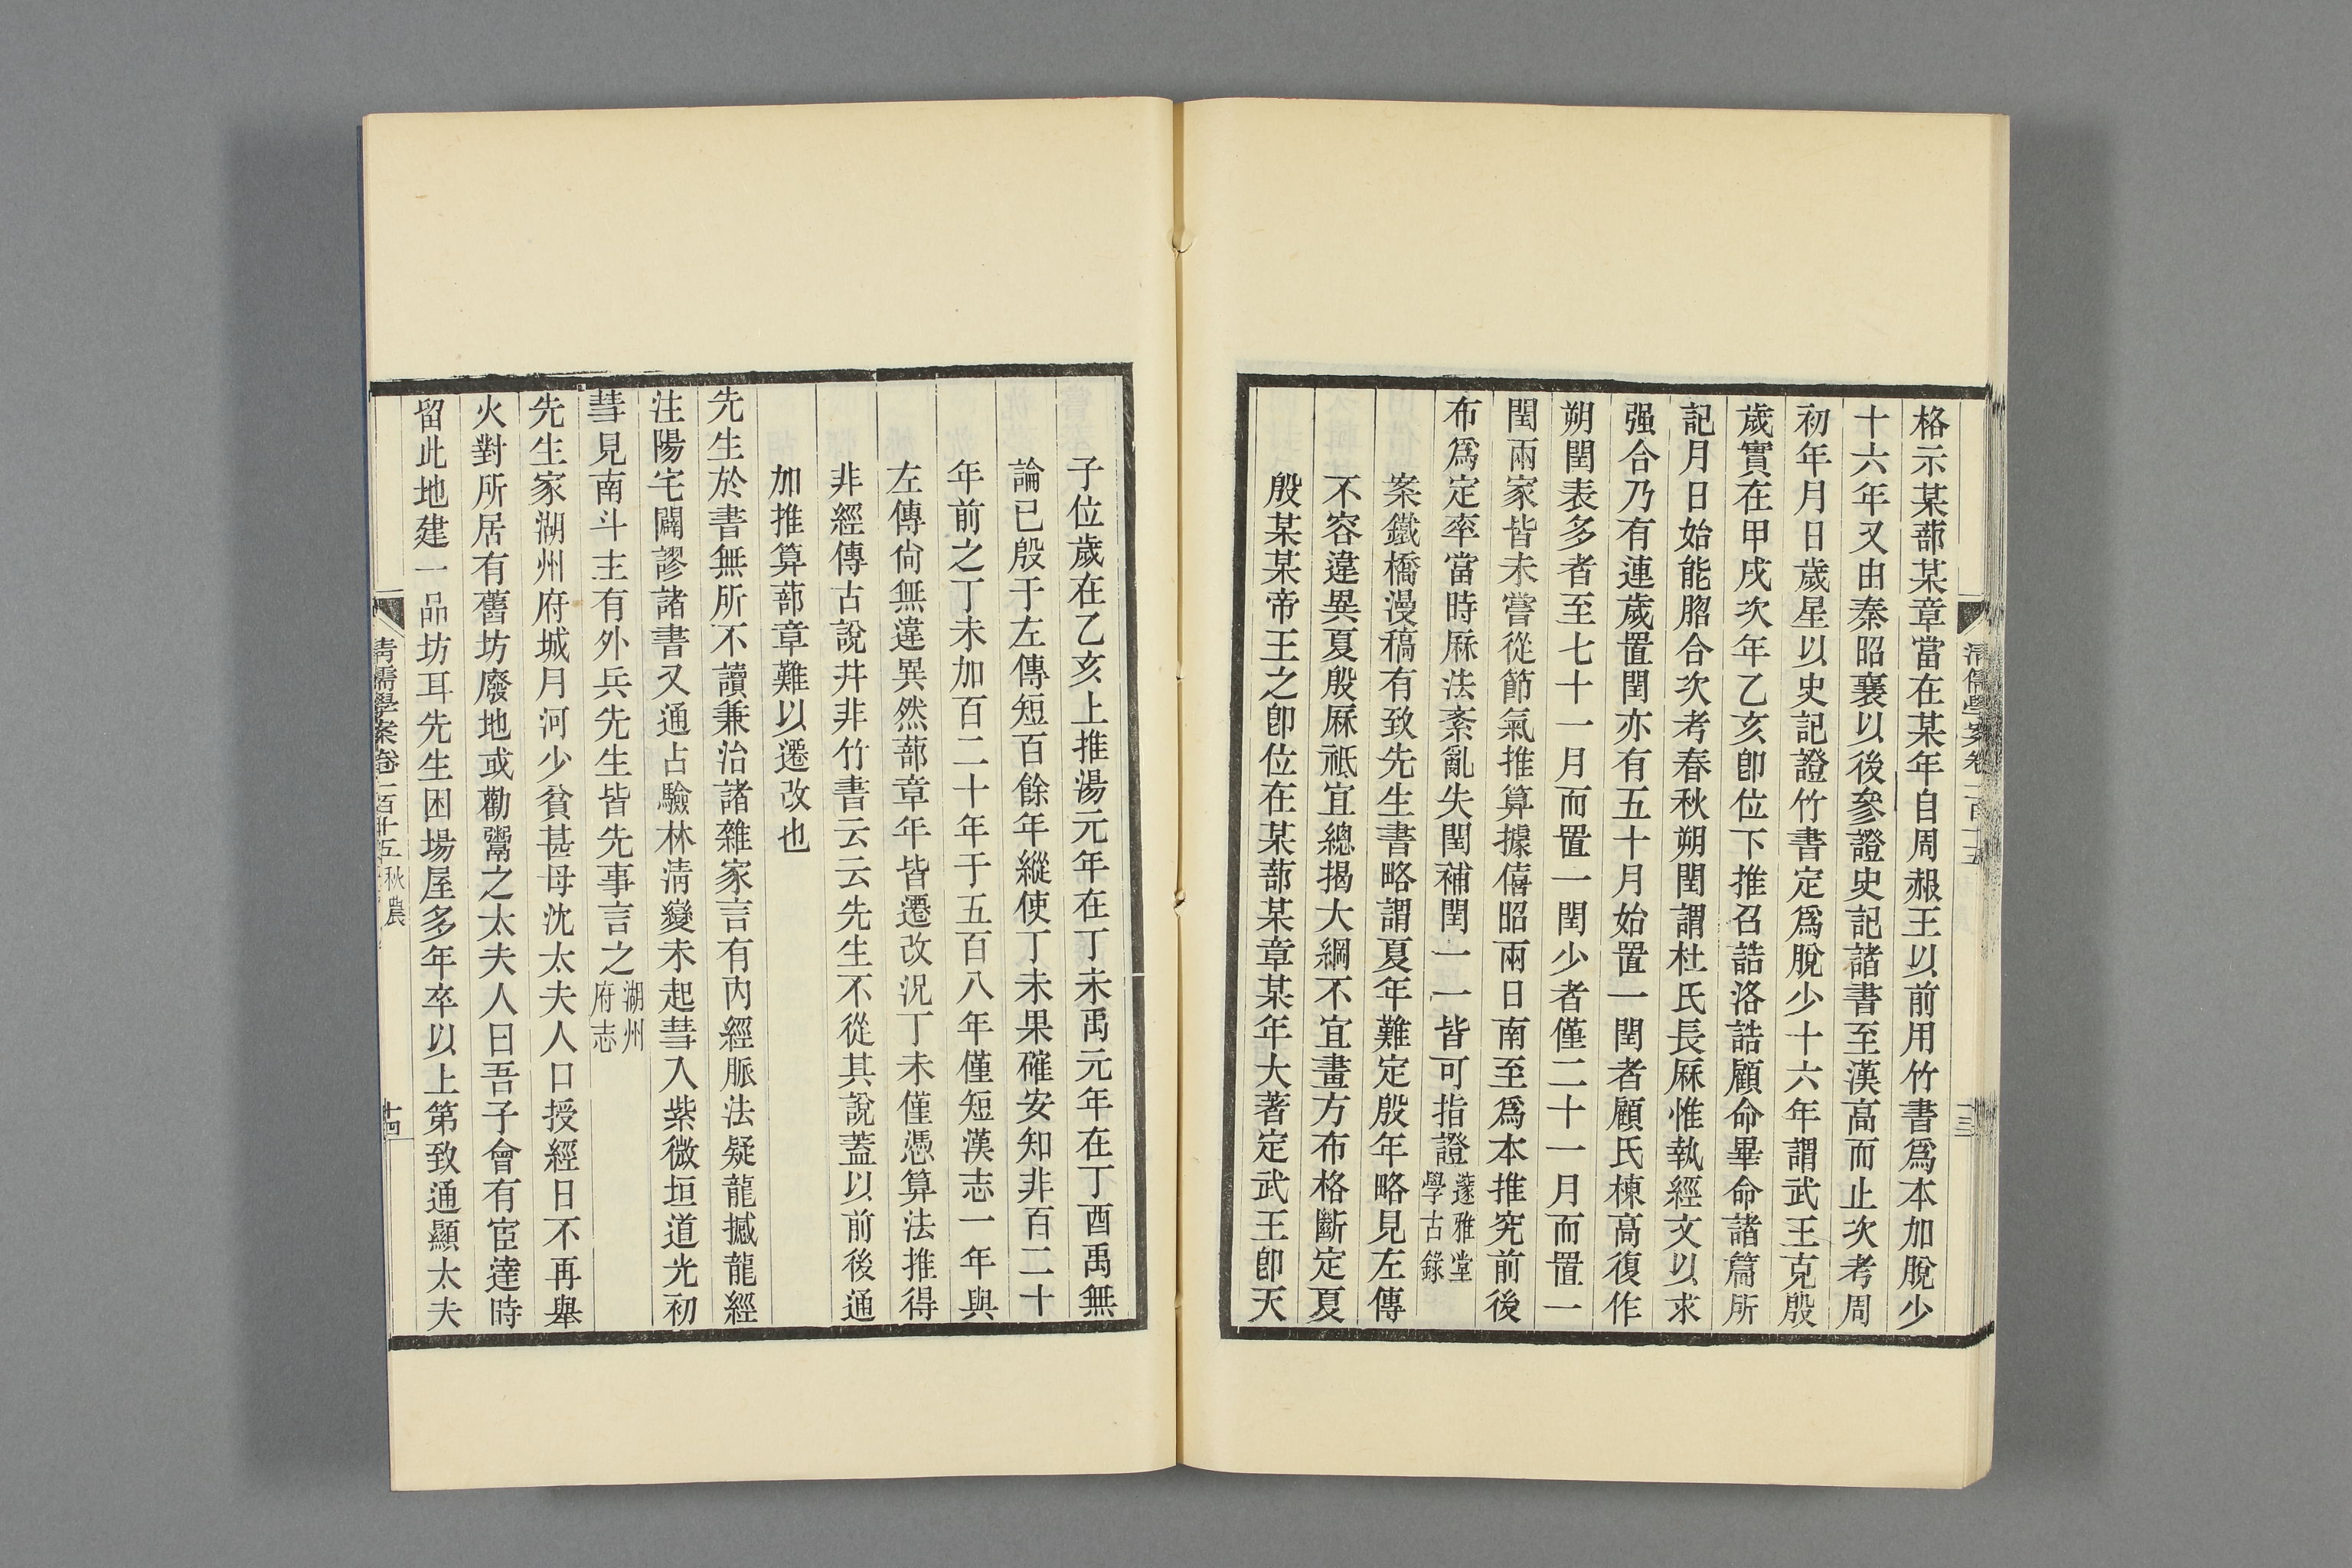 格示某蔀某章當在某年自周赧王以前用竹書爲本加脫少
十六年又由秦昭襄以後參證史記諸書至漢高而止次考周
初年月日歲星以史記證竹書定爲脫少十六年謂武王克殷
歲實在甲戌次年乙亥卽位下推召誥洛誥顧命畢命諸篇所
記月日始能脗合次考春秋朔閏謂杜氏長厤惟執經文以求
强合乃有連歲置閏亦有五十月始置一閏者顧氏棟高復作
朔閏表多者至七十一月而置一閏少者僅二十一月而置一
閏兩家皆未嘗從節氣推算據僖昭兩日南至爲本推究前後
布爲定率當時厤法紊亂失閏補閏一一皆可指證邃雅堂
學古錄
案鐵橋漫稿有致先生書略謂夏年難定殷年略見左傳
不容違異夏殷厤祗宜總揭大綱不宜畫方布格斷定夏
殷某某帝王之卽位在某蔀某章某年大著定武王卽天
子位歲在乙亥上推湯元年在丁未禹元年在丁酉禹無
論已殷于左傳短百餘年縱使丁未果確安知非百二十
年前之丁未加百二十年于五百八年僅短漢志一年與
左傳尙無違異然蔀章年皆遷改況丁未僅憑算法推得
非經傳古說幷非竹書云云先生不從其說蓋以前後通
加推算蔀章難以遷改也
先生於書無所不讀兼治諸雜家言有內經脈法疑龍撼龍經
注陽宅闢謬諸書又通占驗林淸變未起彗入紫微垣道光初
彗見南斗主有外兵先生皆先事言之湖州
府志
先生家湖州府城月河少貧甚母沈太夫人口授經日不再舉
火對所居有舊坊廢地或勸鬻之太夫人曰吾子會有宦達時
留此地建一品坊耳先生困場屋多年卒以上第致通顯太夫
淸儒學案卷一百十五 秋農
十四